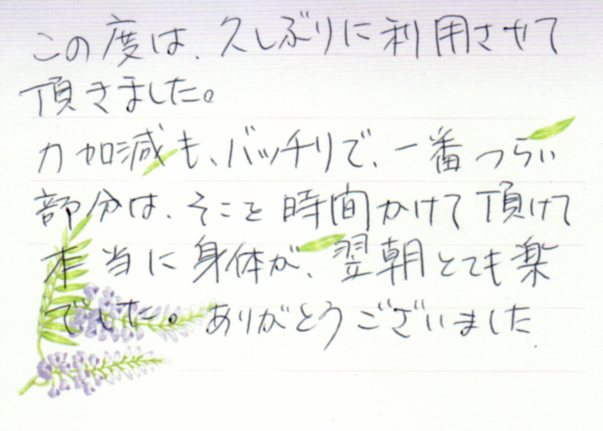 この度は、久しぶりに利用させて
頂きました。
力加減も、バッチリで、一番つらい
部分は、そこを時間かけて頂けて
本当に身体が、翌朝とても楽
でした。ありがとうございました